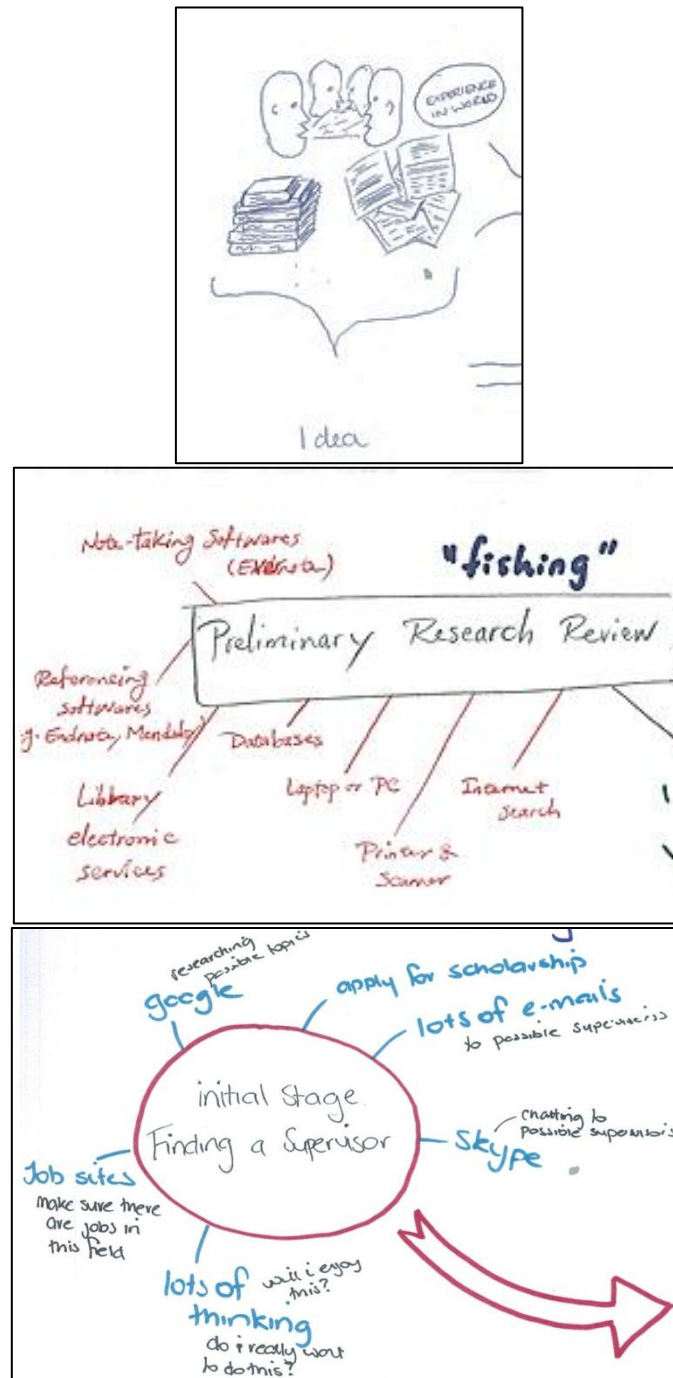 EXPERIENCE
IN WORLD
Idea
Note-taking Softwares
"fishing"
Preliminary Research Review
Referencing
softwares
g. Endnote, Mendeley)
Databases
Laptop or PC
Internet
Search
Library
electronic
services
Printer &
Scanner
researching
possible topics
google
apply for scholarship
lots of e-mails
to possible supervisors
initial stage
Finding a Supervisor
skype
chatting to
possible supervisors
Job sites
make sure there
are jobs in
this field
lots of
thinking
will i enjoy
this?
do i really want
to do this?